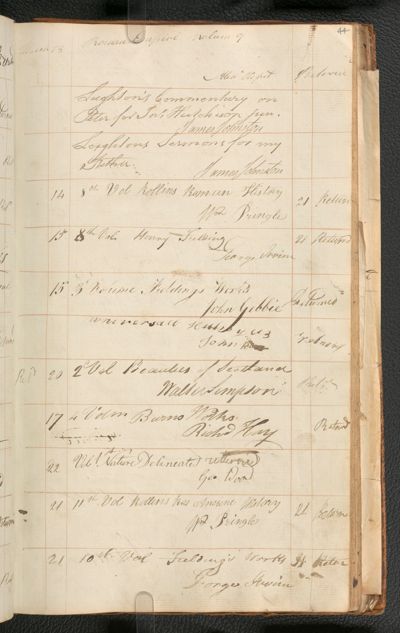 44
Roman Empire Volume 9
Returned
Leighton's Commentary on
Peter for Jas Hutchison Jun.
James Johnston
Leighton's Sermons for my
Mother.
James Johnston
14 8th Vol Rollins Roman History
21 Return
Wm Pringle
15 8th Vol Henry Fielding
21 Returned
George Irvine
15 Volume Fieldings Works
Returned
John Gebbie
universal History 43
John
Returned
Retd 20 2d Vol Beauties of Scotland
Walter Simpson
17 4 Volm Burns Works
Retnd
Richd Hay
22 Vol 1st Nature Delineated returned
Geo Wood
21 11th Vol Rollins Ancient History
24 Return
Wm Pringle
21 10th Vol Fielding's Works
28 Retur
George Irvine